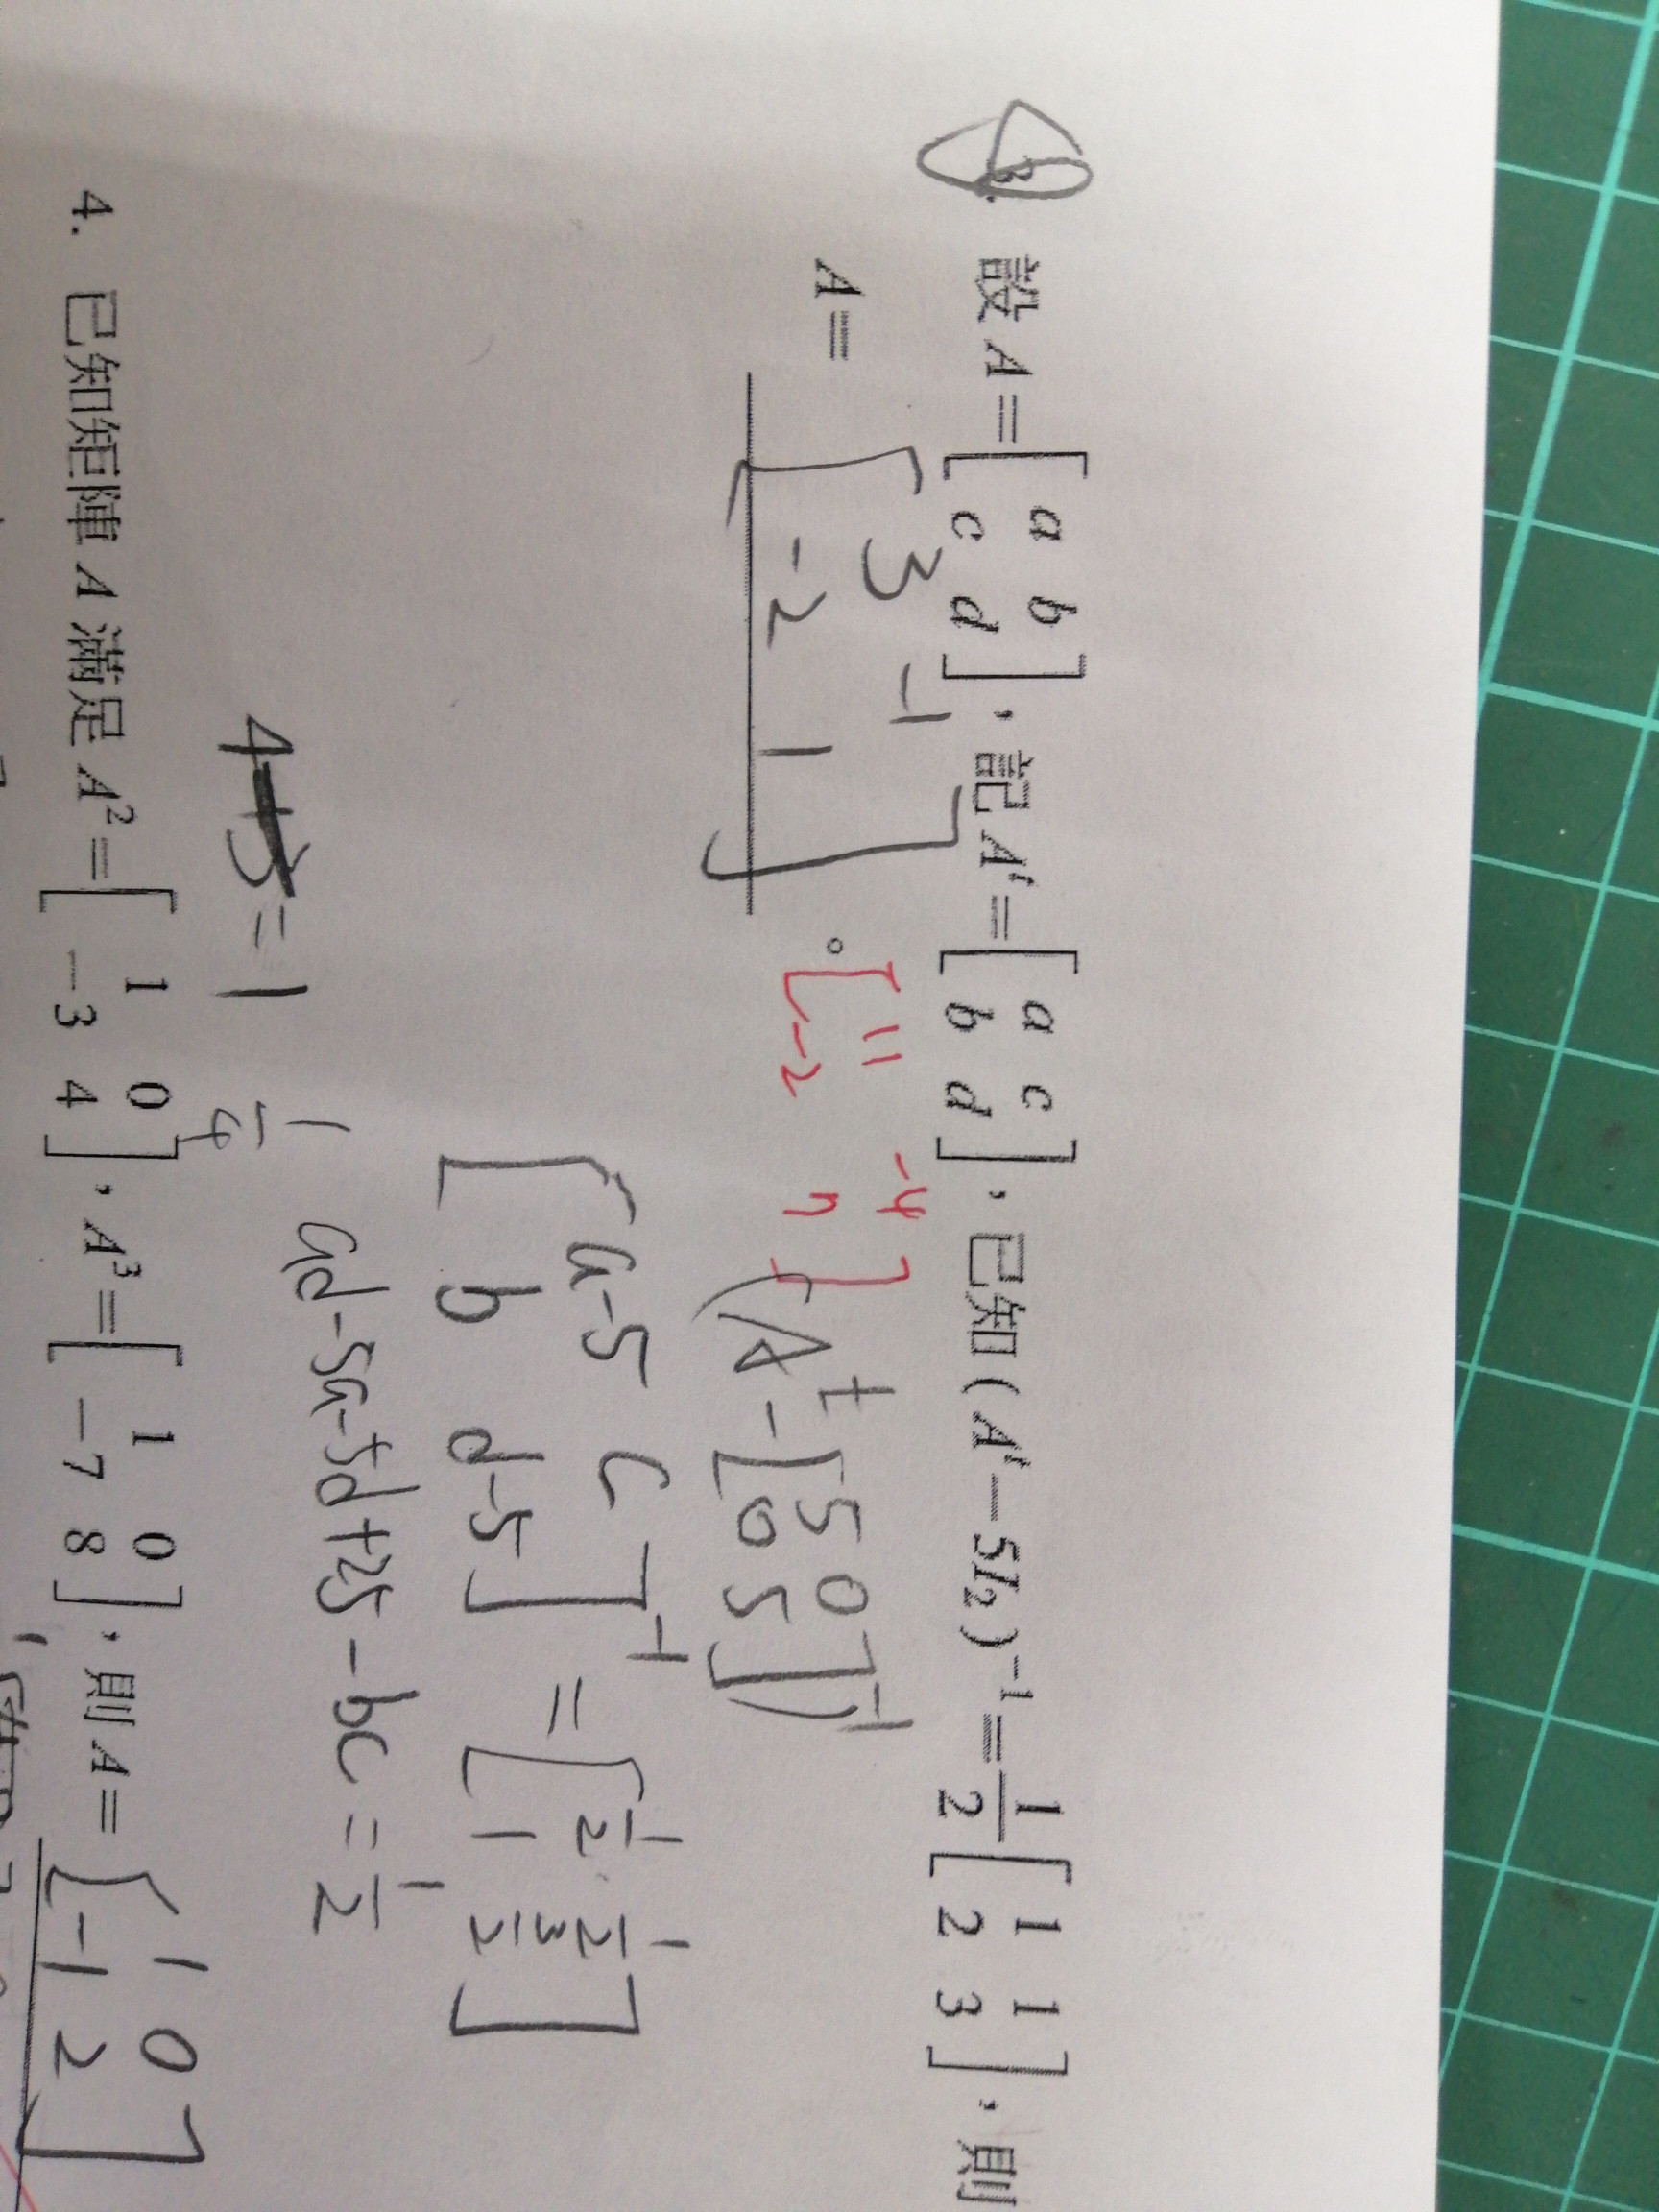 3. 設 A = [ a b ; c d ],記 Aᵗ = [ a c ; b d ],已知 ( Aᵗ − 5I₂ )⁻¹ = 1/2 [ 1 1 ; 2 3 ],則
A = [ 3 -1 ; -2 1 ] 。 [ 11 -4 ; -2 7 ]
( Aᵗ - [ 5 0 ; 0 5 ] )⁻¹
[ a-5 c ; b d-5 ]⁻¹ = [ 1/2 1/2 ; 1 3/2 ]
1/4 ad-5a-5d+25-bc = 1/2
= 1
4. 已知矩陣 A 滿足 A² = [ 1 0 ; −3 4 ],A³ = [ 1 0 ; −7 8 ],則 A = [ 1 0 ; -1 2 ]